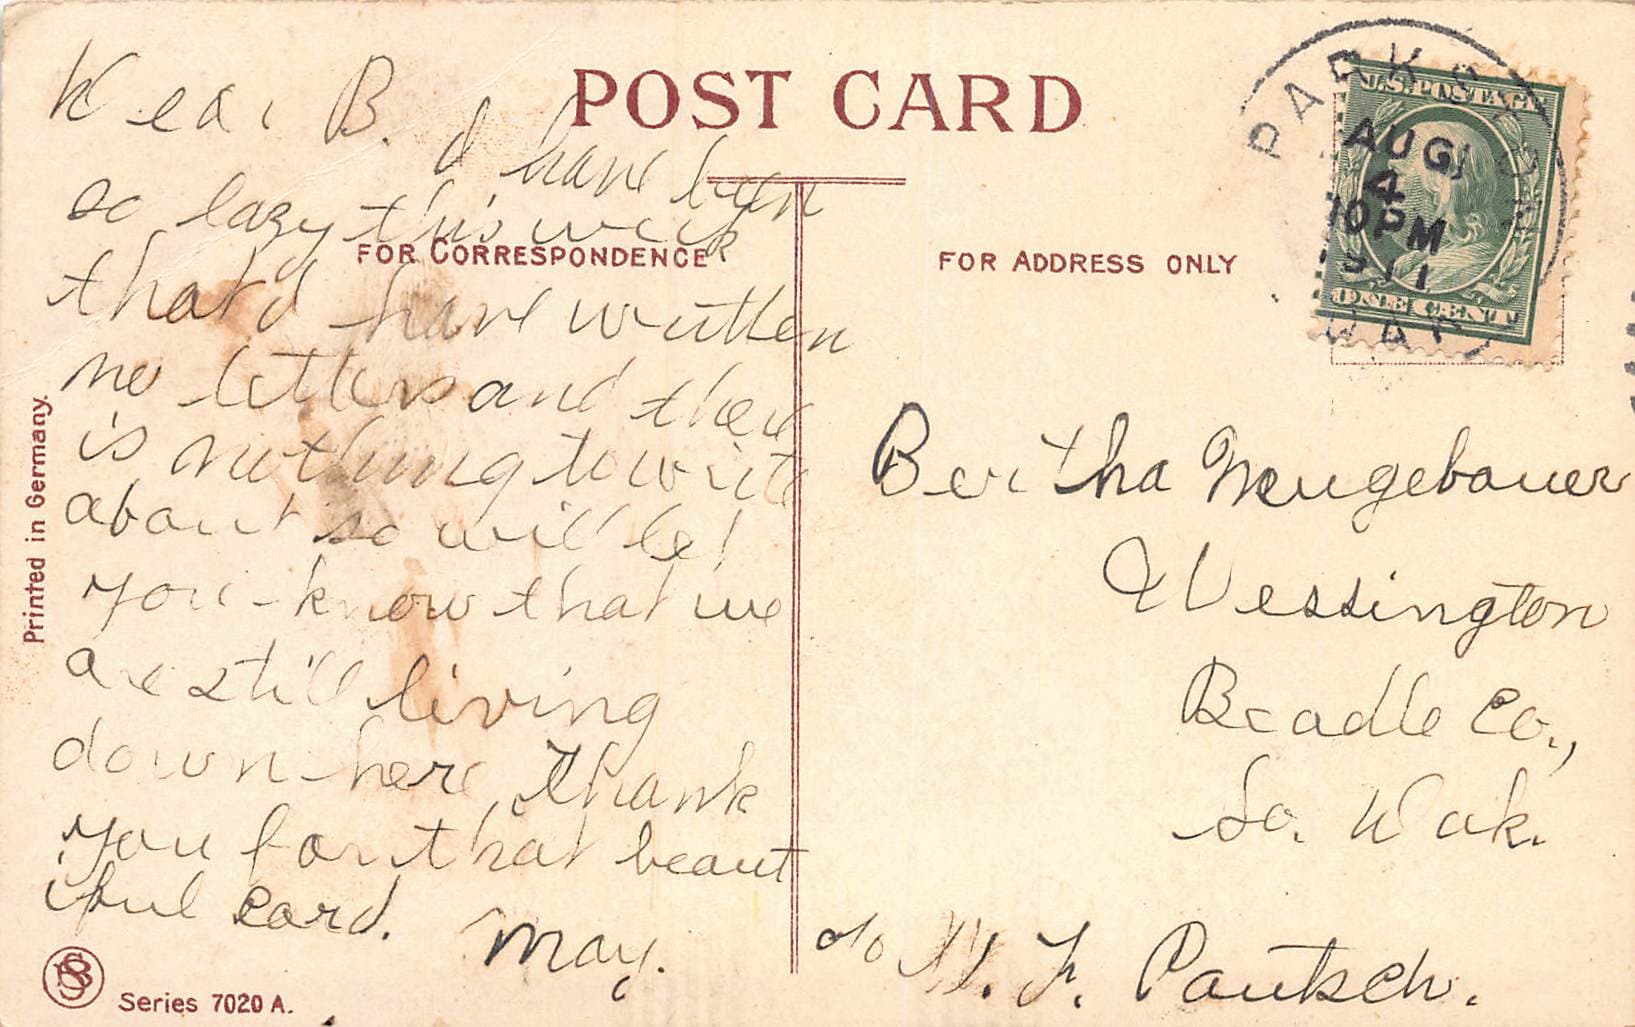 POST CARD
FOR CORRESPONDENCE
FOR ADDRESS ONLY
Dear B. I have been
so lazy this week
that I have written
no letters and there
is nothing to write
about so will let
you know that we
are still living
down here, thank
you for that beaut
iful card. May.
PARKSTON
AUG
4
10PM
1911
DAK
U.S. POSTAGE
ONE CENT
Bertha Neugebauer
Wessington
Beadle Co.,
So. Dak.
c/o W. F. Pautsch.
Printed in Germany.
Series 7020 A.